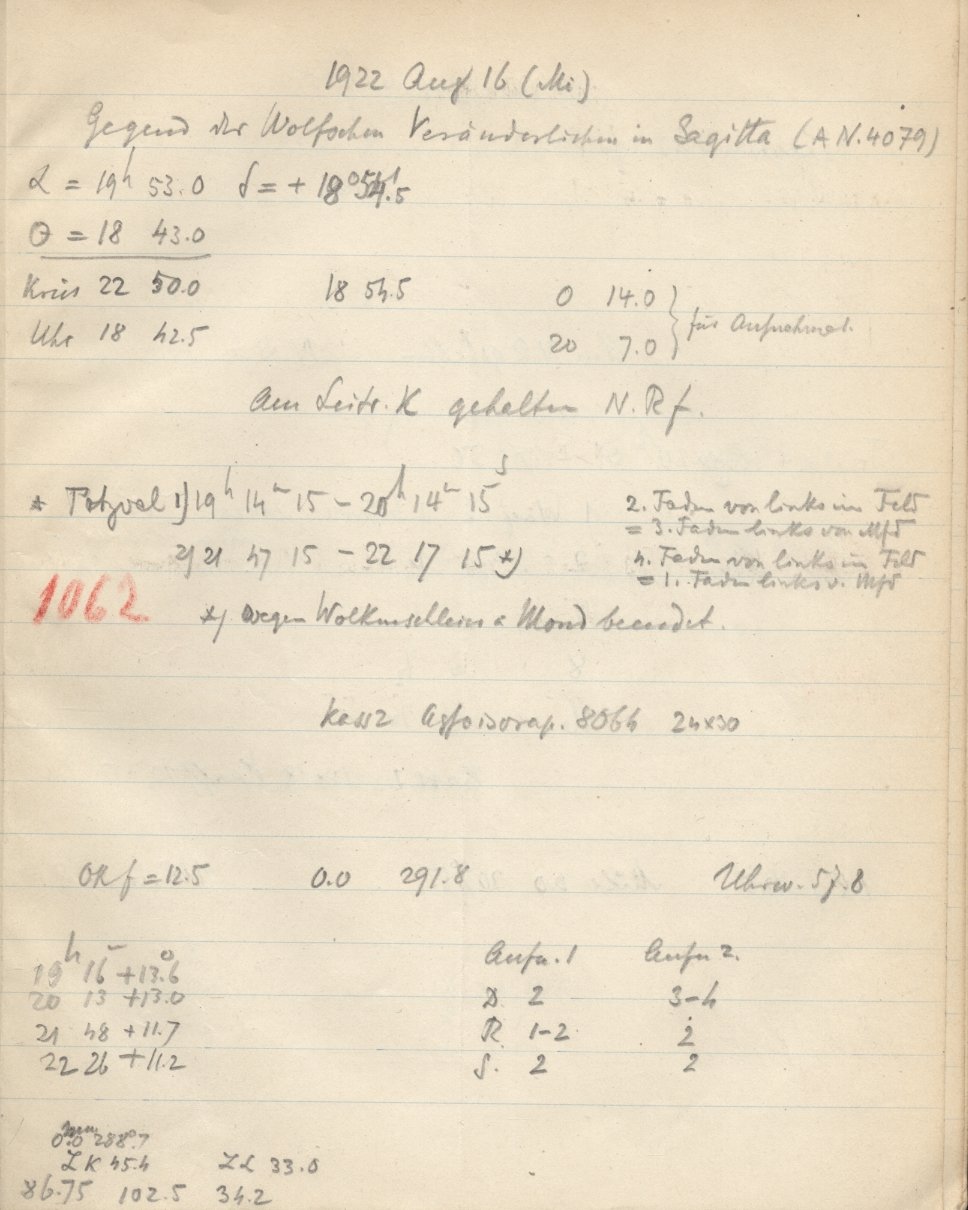 1922 Aug 16 (Mi)
Gegend der Wolfschen Veränderlichen in Sagitta (A N. 4079)
α = 19h 53.0 δ = + 18° 54.5
θ = 18 43.0
Kreis 22 50.0 18 54.5 0 14.0 } für Aufnahme 1.
Uhr 18 42.5 20 7.0
Am Leitr. K gehalten N. R f.
* Petzval 1) 19h 14m 15 – 20h 14m 15s 2. Faden von links im Feld
= 3. Faden links von Mfd
2) 21 47 15 – 22 17 15 *) 4. Faden von links im Feld
= 1. Faden links v. Mfd
1062
*) wegen Wolkenschleier u Mond beendet.
Kass 2 Agfaisorap. 8064 24x30
ORf = 12.5 0.0 291.8 Uhrw. 57.8
19h 16m +13.6° Aufn. 1 Aufn 2.
20 13 +13.0 D. 2 3–4
21 48 +11.7 R. 1–2 2
22 26 +11.2 S. 2 2
0.0 288.7
ZK 45.4 ZL 33.0
86.75 102.5 34.2